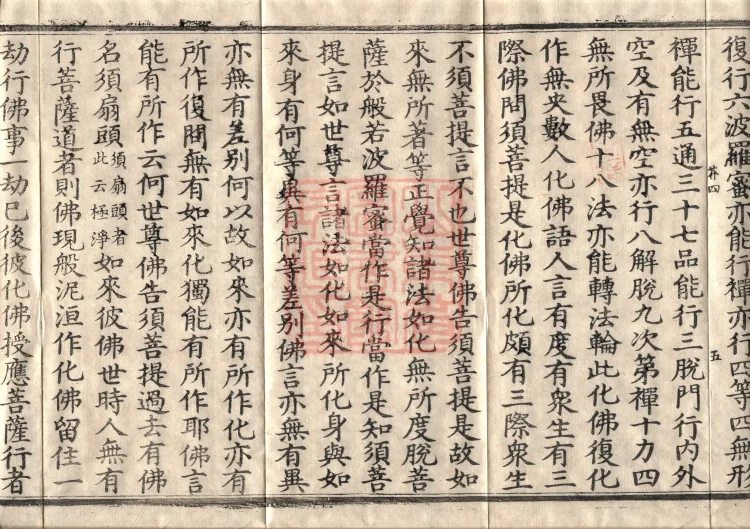 復行六波羅蜜亦能行禪亦行四等四無形
芥四
五
禪能行五通三十七品能行三脫門行內外
空及有無空亦行八解脫九次第禪十力四
無所畏佛十八法亦能轉法輪此化佛復化
作無央數人化佛語人言有度有衆生有三
際佛問須菩提是化佛所化頗有三際衆生
不須菩提言不也世尊佛告須菩提是故如
來無所著等正覺知諸法如化無所度脫菩
薩於般若波羅蜜當作是行當作是知須菩
提言如世尊言諸法如化如來所化身與如
來身有何等異有何等差別佛言亦無有異
亦無有差別何以故如來亦有所作化亦有
所作復問無有如來化獨能有所作耶佛言
能有所作云何世尊佛告須菩提過去有佛
名須扇頭須扇頭者此云極淨如來彼佛世時人無有
行菩薩道者則佛現般泥洹作化佛留住一
劫行佛事一劫已後彼化佛授應菩薩行者